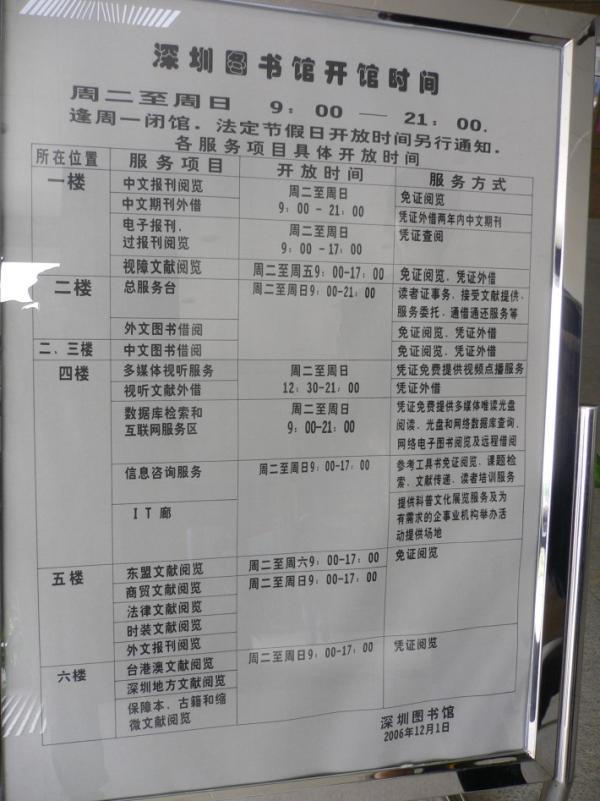 深圳图书馆开馆时间
周二至周日 9：00 — 21：00.
逢周一闭馆．法定节假日开放时间另行通知．
各服务项目具体开放时间
所在位置 服务项目 开放时间 服务方式
一楼 中文报刊阅览 周二至周日 免证阅览
中文期刊外借 9：00－21：00 凭证外借两年内中文期刊
电子报刊． 周二至周日 凭证查阅
过报刊阅览 9：00－17：00
视障文献阅览 周二至周五9：00-17：00 免证阅览．凭证外借
二楼 总服务台 周二至周日9：00-21：00 读者证事务．接受文献提供．
服务委托．通借通还服务等
外文图书借阅 免证阅览．凭证外借
二．三楼 中文图书借阅 免证阅览．凭证外借
四楼 多媒体视听服务 周二至周日 凭证免费提供视频点播服务
视听文献外借 12：30-21：00 凭证外借
数据库检索和 周二至周日 凭证免费提供多媒体唯读光盘
互联网服务区 9：00-21：00 阅读．光盘和网络数据库查询．
网络电子图书阅览及远程借阅
信息咨询服务 周二至周日9：00-17：00 参考工具书免证阅览．课题检
索．文献传递．读者培训服务
IT廊 提供科普文化展览服务及为
有需求的企事业机构举办活
动提供场地
五楼 东盟文献阅览 周二至周六9：00-17：00 免证阅览
商贸文献阅览 周二至周日9：00-17：00
法律文献阅览
时装文献阅览
外文报刊阅览
六楼 台港澳文献阅览 周二至周日9：00-17：00 凭证阅览
深圳地方文献阅览
保障本．古籍和缩
微文献阅览
深圳图书馆
2006年12月1日